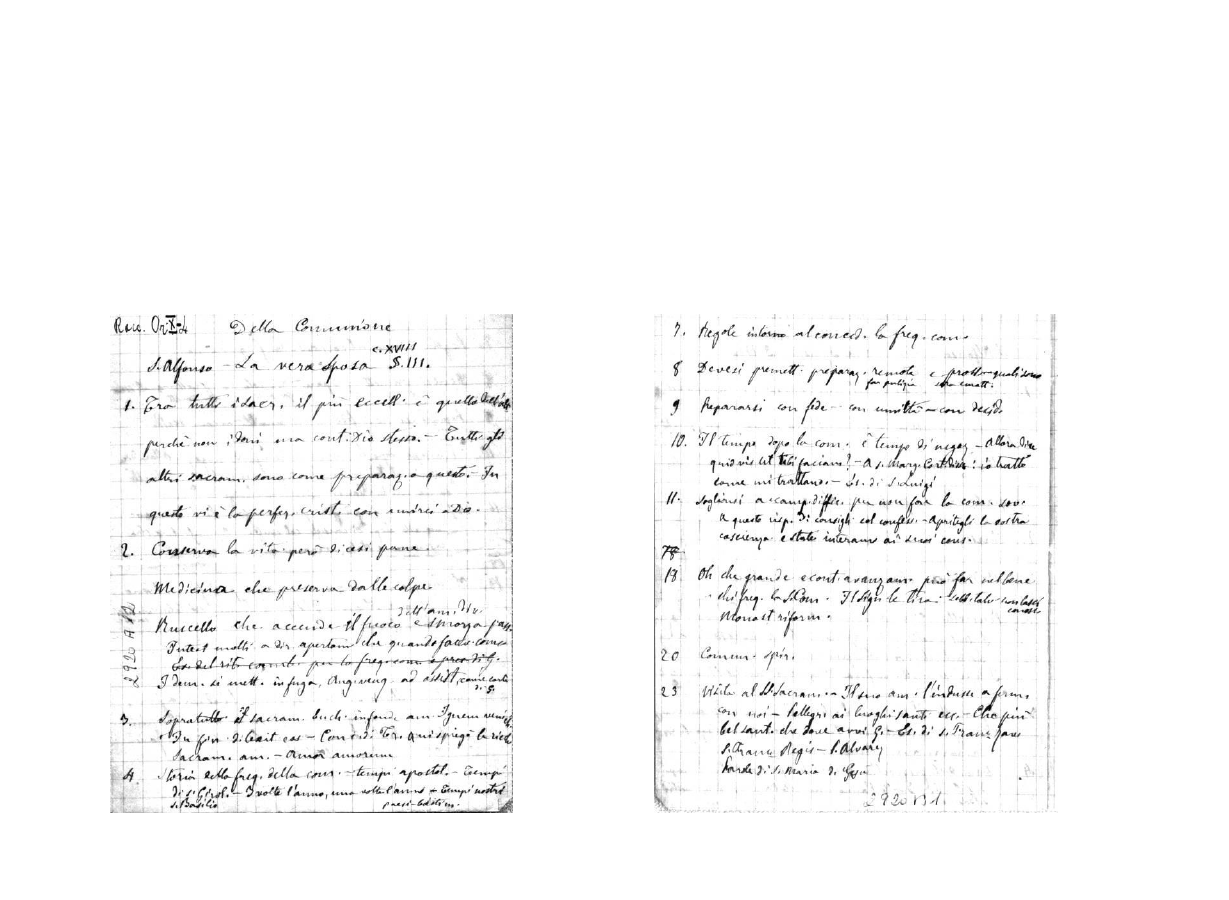 Racc. Or. X-4
Della Comunione
S. Alfonso - La vera Sposa c. XVIII §. III.
1. Tra tutti i sacr. il più eccell. è quello dell'alt.
perchè non i doni ma cont. Dio stesso. - Tutti gli
altri sacram. sono come preparaz. a questo. - In
questo vi è la perfez. crist. con unirci a Dio.
2. Conserva la vita però dicesi pane.
Medicina che preserva dalle colpe
dell'am. div.
Ruscello che accende il fuoco e smorza pass.
Intest molti a dir. apertam che quando fatto com.
I dem. si mett. in fuga, Ang. veng. ad assist. come
di S.
3. Sopratutto il sacram. Euch. infonde am. Ignem veni
In fin. dilexit eos - Conc. di Tr. qui spiegò le ricch
Sacram. am. - Amor amorum
4. Storia della freq. della com. - tempi apostol. - Tempi
di S. Girol. - 3 volte l'anno, una volta l'anno - Tempi nostri
S. Basilio
2920 A 12
7. Regole intorno al conced. la freq. com.
8 Devesi premett. preparaz. remota e pross. quali sono
far pulizia
9 Prepararsi con fede - con umiltà - con desid.
10. Il tempo dopo la com. è tempo di negoz - Allora dice
quid vis ut tibi faciam? - A S. Marg. Cort. disse: io tratto
come mi trattano - Es. di S. Luigi
11. Soglionsi accamp. diffic. per non fare la com. sov.
A questo risp. di consigli col confess. - Apritegli la vostra
coscienza e state interam ai suoi cons.
18 Oh che grande e cont. avanzam. può far nel bene
chi freq. la S. Com. - Il Sign. le tira:
Monast. riform.
20 Comun. spir.
23 Visita al SS. Sacram. - Il suo am. l'indusse a ferm.
con noi - Pellegri ai luoghi santi ecc. - Che più
bel santi. che dove avvi G. - Es. di S. Franc. Zav
S. Franc. Regis - S. Alvarez
Parole di S. Maria di Gesù
2920 B 1